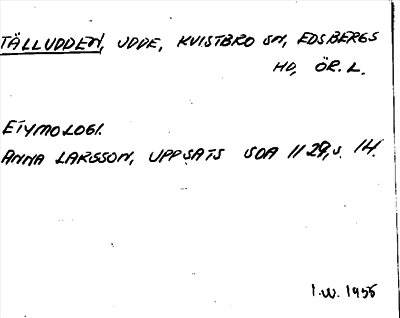 TÄLLUDDEN, UDDE, KVISTBRO SN, EDSBERGS
HD, ÖR. L.
ETYMOLOGI.
ANNA LARSSON, UPPSATS SOA 1129, S. 14.
I.W. 1956